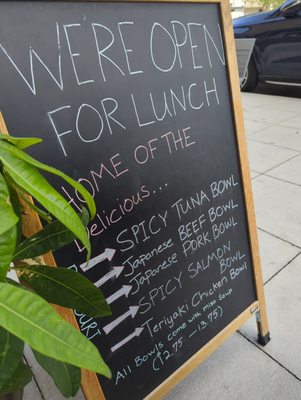 WE'RE OPEN
FOR LUNCH
HOME OF THE
Delicious...
SPICY TUNA BOWL
Japanese BEEF BOWL
Japanese PORK BOWL
SPICY SALMON
BOWL
Teriyaki Chicken Bowl
All Bowls come with miso soup
($12.75 - 13.75)